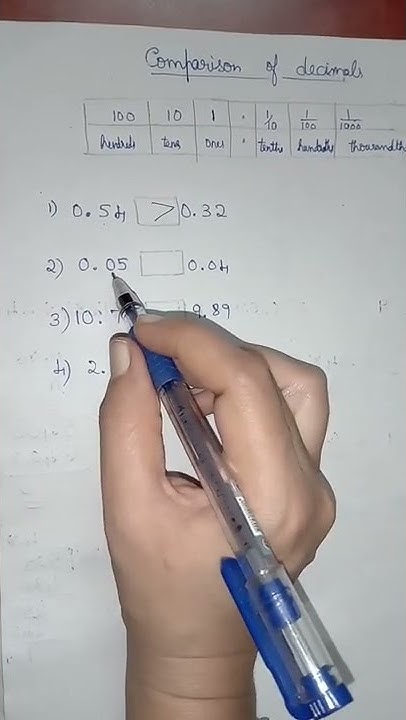 Comparison of decimals
100 10 1 . 1/10 1/100 1/1000
hundreds tens ones . tenths hundredths thousandth
1) 0.54 > 0.32
2) 0.05 0.04
3) 10:7 9.89
4) 2.